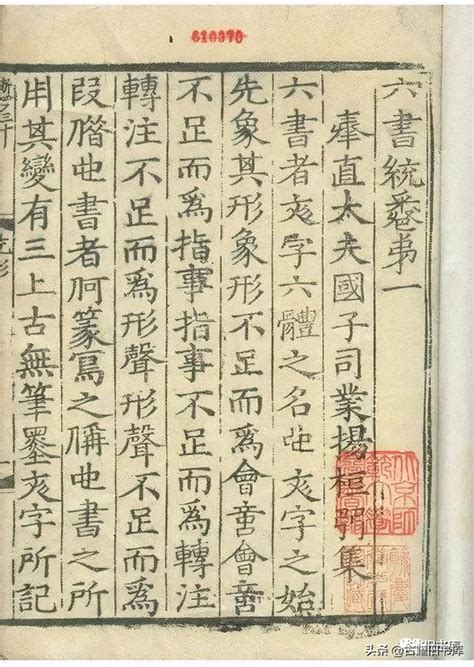 610370
六書統卷第一
奉直太夫國子司業楊桓弼集
六書者文字六體之名也文字之始
先象其形象形不足而爲會意會意
不足而爲指事指事不足而爲轉注
轉注不足而爲形聲形聲不足而爲
叚借也書者何篆寫之稱也書之所
用其變有三上古無筆墨文字所記